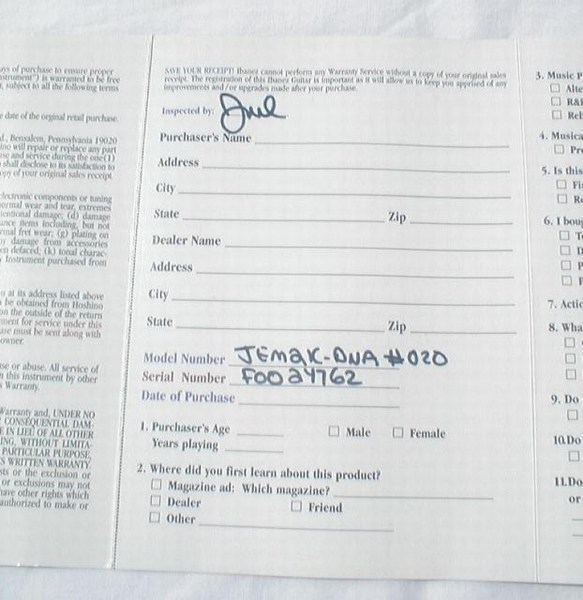 ays of purchase to ensure proper
nstrument") is warranted to be free
r, subject to all the following terms
e date of the orginal retail purchase.
d., Bensalem, Pennsylvania 19020
ino will repair or replace any part
ne and service during the one(1)
shall disclose to its satisfaction to
opy of your original sales receipt.
electronic components or tuning
ormal wear and tear, extremes
tentional damage; (d) damage
ance items including, but not
rmal fret wear; (g) plating on
ny damage from accessories
en defaced; (k) tonal charac-
y Instrument purchased from
o at its address listed above
be obtained from Hoshino
on the outside of the return
ment for service under this
use must be sent along with
owner.
se or abuse. All service of
n this instrument by other
s Warranty.
Warranty and, UNDER NO
CONSEQUENTIAL DAM-
E IN LIEU OF ALL OTHER
ING, WITHOUT LIMITA-
PARTICULAR PURPOSE,
S WRITTEN WARRANTY.
sts or the exclusion or
or exclusions may not
have other rights which
authorized to make or
SAVE YOUR RECEIPT! Ibanez cannot perform any Warranty Service without a copy of your original sales
receipt. The registration of this Ibanez Guitar is important as it will allow us to keep you apprised of any
improvements and/or upgrades made after your purchase.
Inspected by:
Purchaser's Name
Address
City
State Zip
Dealer Name
Address
City
State Zip
Model Number JEM2K-DNA #020
Serial Number F0024762
Date of Purchase
1. Purchaser's Age Male Female
Years playing
2. Where did you first learn about this product?
Magazine ad: Which magazine?
Dealer Friend
Other
3. Music P
Alte
R&
Rel
4. Musica
Pr
5. Is this
Fi
R
6. I bou
T
D
P
P
7. Actio
8. Wha
9. Do
10.Do
11.Do
or